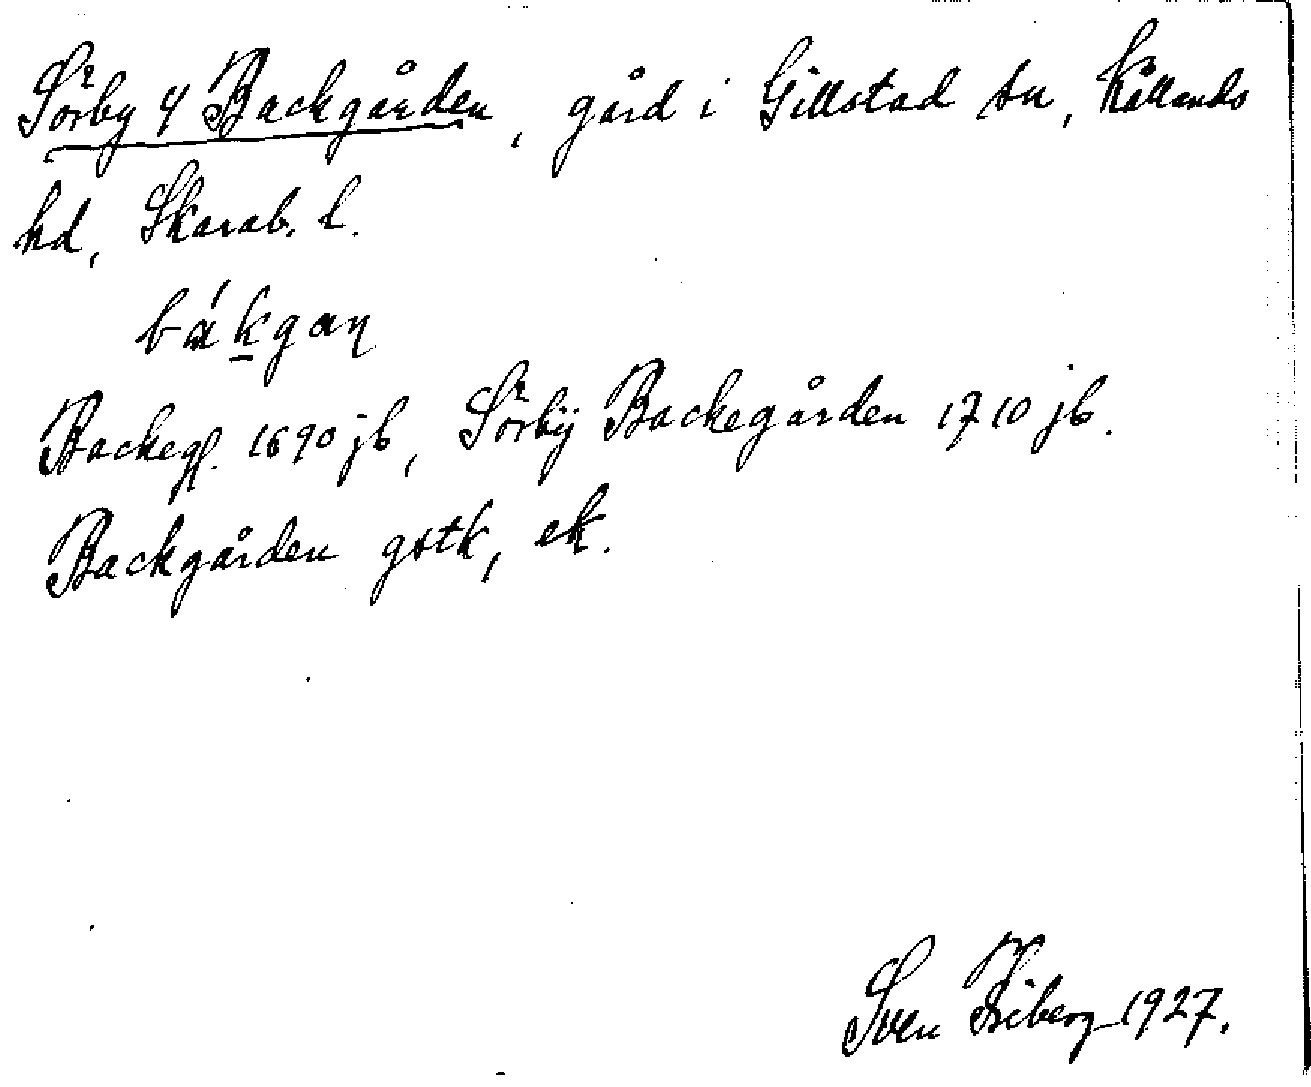 Sörby 4 Backgården, gård i Gillstad sn, Kållands
hd, Skarab. l.
bákgaɳ
Backeg. 1690 jb, Sörbÿ Backegården 1710 jb.
Backgården gstk, ek.
Sven 1927.